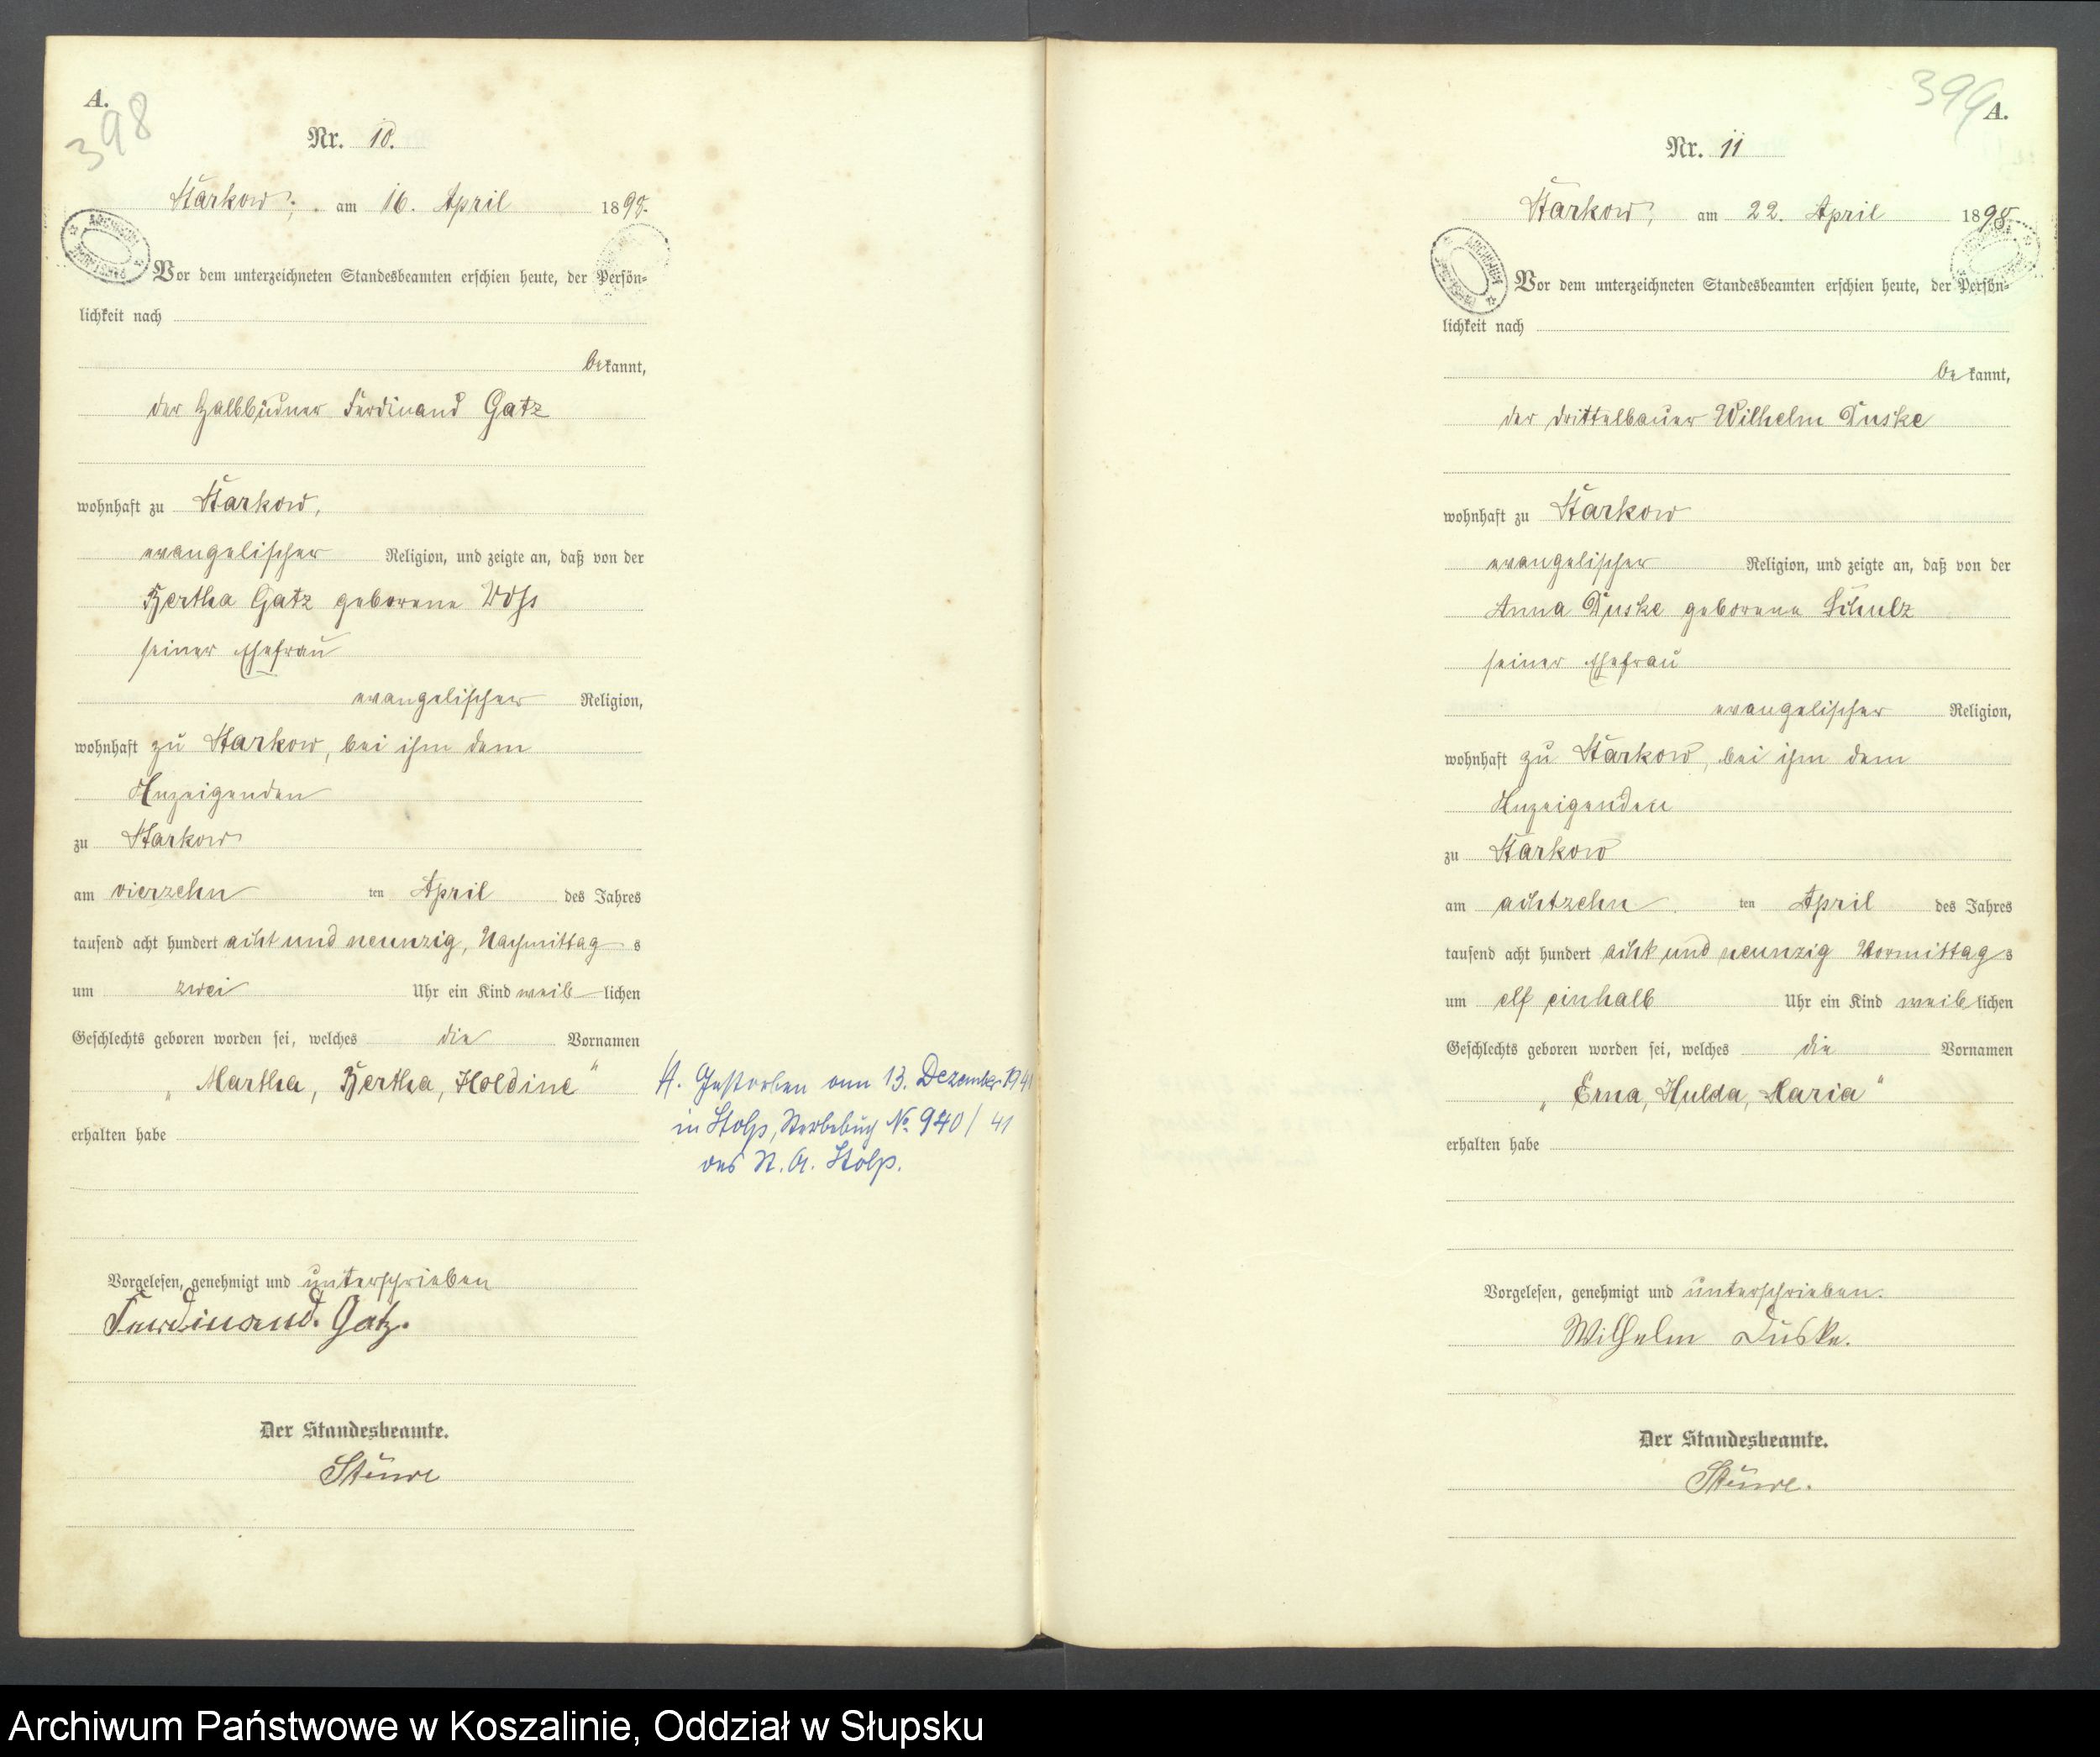 A.
398
Nr. 10.
Starkow, am 16. April 1898.
ARCHIWUM PAŃSTWOWE
Vor dem unterzeichneten Standesbeamten erschien heute, der Persön-
lichkeit nach
bekannt,
der Halbbüdner Ferdinand Gatz
wohnhaft zu Starkow,
evangelischer Religion, und zeigte an, daß von der
Hertha Gatz geborene Voss
seiner Ehefrau
evangelischer Religion,
wohnhaft zu Starkow, bei ihm dem
Anzeigenden
zu Starkow
am vierzehn ten April des Jahres
tausend acht hundert acht und neunzig, Nachmittag s
um zwei Uhr ein Kind weib lichen
Geschlechts geboren worden sei, welches die Vornamen
„Martha, Hertha, Holdine“
erhalten habe
Vorgelesen, genehmigt und unterschrieben
Ferdinand. Gatz.
Der Standesbeamte.
Stüwe
Gestorben am 13. Dezember 1941
in Stolp, Sterbebuch No 940/41
des St. A. Stolp.
399
A.
Nr. 11
Starkow, am 22. April 1898
ARCHIWUM PAŃSTWOWE
Vor dem unterzeichneten Standesbeamten erschien heute, der Persön-
lichkeit nach
bekannt,
der Drittelbauer Wilhelm Duske
wohnhaft zu Starkow
evangelischer Religion, und zeigte an, daß von der
Anna Duske geborene Schulz
seiner Ehefrau
evangelischer Religion,
wohnhaft zu Starkow, bei ihm dem
Anzeigenden
zu Starkow
am achtzehn ten April des Jahres
tausend acht hundert acht und neunzig Vormittag s
um elf einhalb Uhr ein Kind weib lichen
Geschlechts geboren worden sei, welches die Vornamen
„Erna, Hulda, Maria“
erhalten habe
Vorgelesen, genehmigt und unterschrieben.
Wilhelm Duske.
Der Standesbeamte.
Stüwe.
Archiwum Państwowe w Koszalinie, Oddział w Słupsku